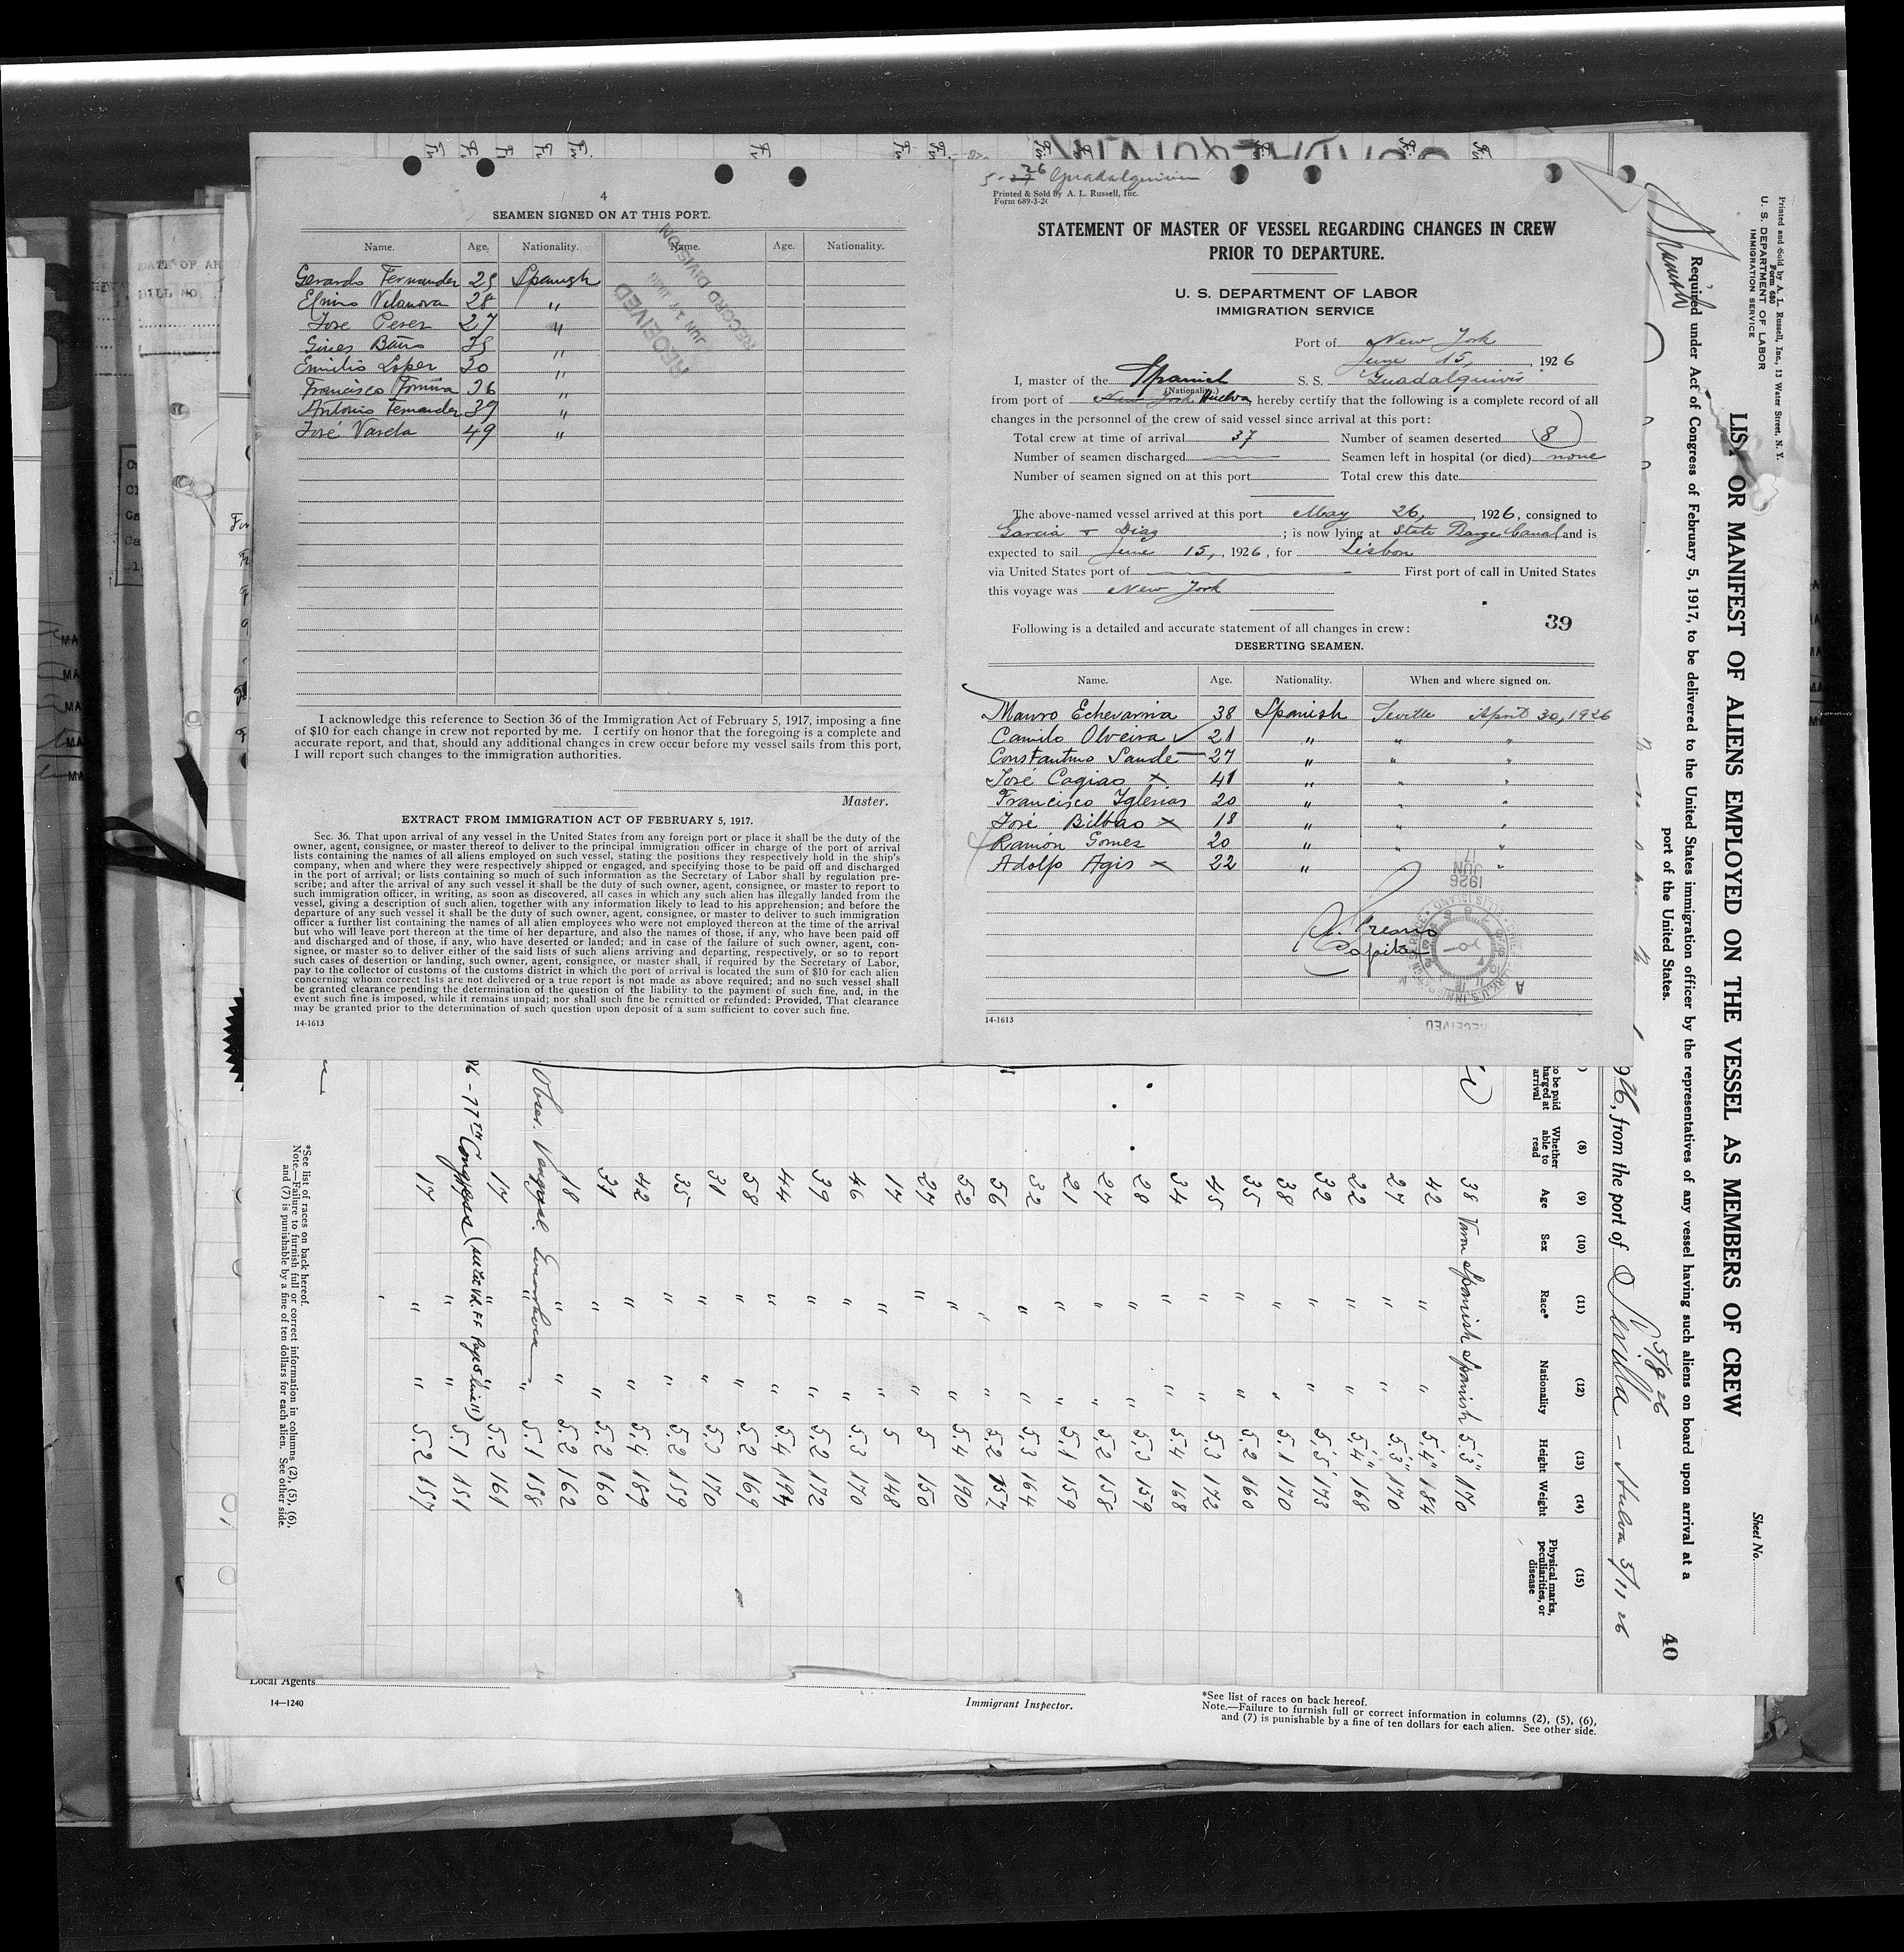 4
SEAMEN SIGNED ON AT THIS PORT.
Name. Age. Nationality. Name. Age. Nationality.
Gerardo Fernander 25 Spanish
Vilanova 28 "
Jose Perez 27 "
Gines 25 "
Emilio Loper 30 "
Francisco 26 "
Antonio Fernander 39 "
José Varela 49 "
RECEIVED
JUN 17 1926
RECORD DIVISION
I acknowledge this reference to Section 36 of the Immigration Act of February 5, 1917, imposing a fine
of $10 for each change in crew not reported by me. I certify on honor that the foregoing is a complete and
accurate report, and that, should any additional changes in crew occur before my vessel sails from this port,
I will report such changes to the immigration authorities.
Master.
EXTRACT FROM IMMIGRATION ACT OF FEBRUARY 5, 1917.
Sec. 36. That upon arrival of any vessel in the United States from any foreign port or place it shall be the duty of the
owner, agent, consignee, or master thereof to deliver to the principal immigration officer in charge of the port of arrival
lists containing the names of all aliens employed on such vessel, stating the positions they respectively hold in the ship's
company, when and where they were respectively shipped or engaged, and specifying those to be paid off and discharged
in the port of arrival; or lists containing so much of such information as the Secretary of Labor shall by regulation pre-
scribe; and after the arrival of any such vessel it shall be the duty of such owner, agent, consignee, or master to report to
such immigration officer, in writing, as soon as discovered, all cases in which any such alien has illegally landed from the
vessel, giving a description of such alien, together with any information likely to lead to his apprehension; and before the
departure of any such vessel it shall be the duty of such owner, agent, consignee, or master to deliver to such immigration
officer a further list containing the names of all alien employees who were not employed thereon at the time of the arrival
but who will leave port thereon at the time of her departure, and also the names of those, if any, who have been paid off
and discharged and of those, if any, who have deserted or landed; and in case of the failure of such owner, agent, con-
signee, or master so to deliver either of the said lists of such aliens arriving and departing, respectively, or so to report
such cases of desertion or landing, such owner, agent, consignee, or master shall, if required by the Secretary of Labor,
pay to the collector of customs of the customs district in which the port of arrival is located the sum of $10 for each alien
concerning whom correct lists are not delivered or a true report is not made as above required; and no such vessel shall
be granted clearance pending the determination of the question of the liability to the payment of such fine, and, in the
event such fine is imposed, while it remains unpaid; nor shall such fine be remitted or refunded: Provided, That clearance
may be granted prior to the determination of such question upon deposit of a sum sufficient to cover such fine.
14-1613
5-27 26 Guadalquivir
Printed & Sold by A. L. Russell, Inc.
Form 689-3-26
STATEMENT OF MASTER OF VESSEL REGARDING CHANGES IN CREW
PRIOR TO DEPARTURE.
U. S. DEPARTMENT OF LABOR
IMMIGRATION SERVICE
Port of New York
June 15, 1926
I, master of the Spanish S. S. Guadalquivir
(Nationality.)
from port of New York Huelva, hereby certify that the following is a complete record of all
changes in the personnel of the crew of said vessel since arrival at this port:
Total crew at time of arrival 37 Number of seamen deserted 8
Number of seamen discharged Seamen left in hospital (or died) none
Number of seamen signed on at this port Total crew this date
The above-named vessel arrived at this port May 26, 1926, consigned to
Garcia & Diaz; is now lying at State Barge Canal and is
expected to sail June 15, 1926, for Lisbon
via United States port of First port of call in United States
this voyage was New York
39
Following is a detailed and accurate statement of all changes in crew:
DESERTING SEAMEN.
Name. Age. Nationality. When and where signed on.
Mauro Echevarria 38 Spanish Seville April 30, 1926
Camilo Olveira 21 " " "
Constantino Saude 27 " " "
José Cagiao x 41 " " "
Francisco Iglesias 20 " " "
José Bilbao x 18 " " "
Ramón Gomez 20 " " "
Adolfo Agis x 22 " " "
1926 JUN 17
Capitan
RECEIVED
14-1613
Printed and Sold by A. L. Russell, Inc., 13 Water Street, N. Y.
Form 680
U. S. DEPARTMENT OF LABOR
IMMIGRATION SERVICE
Spanish
Sheet No.
LIST OR MANIFEST OF ALIENS EMPLOYED ON THE VESSEL AS MEMBERS OF CREW
Required under Act of Congress of February 5, 1917, to be delivered to the United States immigration officer by the representatives of any vessel having such aliens on board upon arrival at a
port of the United States.
40
5/8 26
1926, from the port of Sevilla - Huelva 5/11 26
(8) (9) (10) (11) (12) (13) (14) (15)
to be paid
charged at
arrival
Whether
able to
read
Age Sex Race* Nationality Height Weight
Physical marks,
peculiarities, or
disease
38 Varon Spanish Spanish 5'3" 170
42 " " 5'4" 184
27 " " 5'3" 170
22 " " 5'4" 168
32 " " 5'5 173
38 " " 5.1 170
35 " " 5.2 160
45 " " 5.3 172
34 " " 5.4 168
28 " " 5.3 159
27 " " 5.2 158
21 " " 5.1 159
32 " " 5.3 164
56 " " 5.2 157
52 " " 5.4 190
27 " " 5 150
17 " " 5 148
46 " " 5.3 170
39 " " 5.2 172
44 " " 5.4 194
58 " " 5.2 169
31 " " 5.3 170
35 " " 5.2 159
42 " " 5.4 189
31 " " 5.2 160
18 " " 5.2 162
" " 5.1 158
17 " " 5.2 161
77th Congress
" " 5.1 151
17 " " 5.2 157
*See list of races on back hereof.
Note.—Failure to furnish full or correct information in columns (2), (5), (6),
and (7) is punishable by a fine of ten dollars for each alien. See other side.
Local Agents
14—1240
Immigrant Inspector.
*See list of races on back hereof.
Note.—Failure to furnish full or correct information in columns (2), (5), (6),
and (7) is punishable by a fine of ten dollars for each alien. See other side.